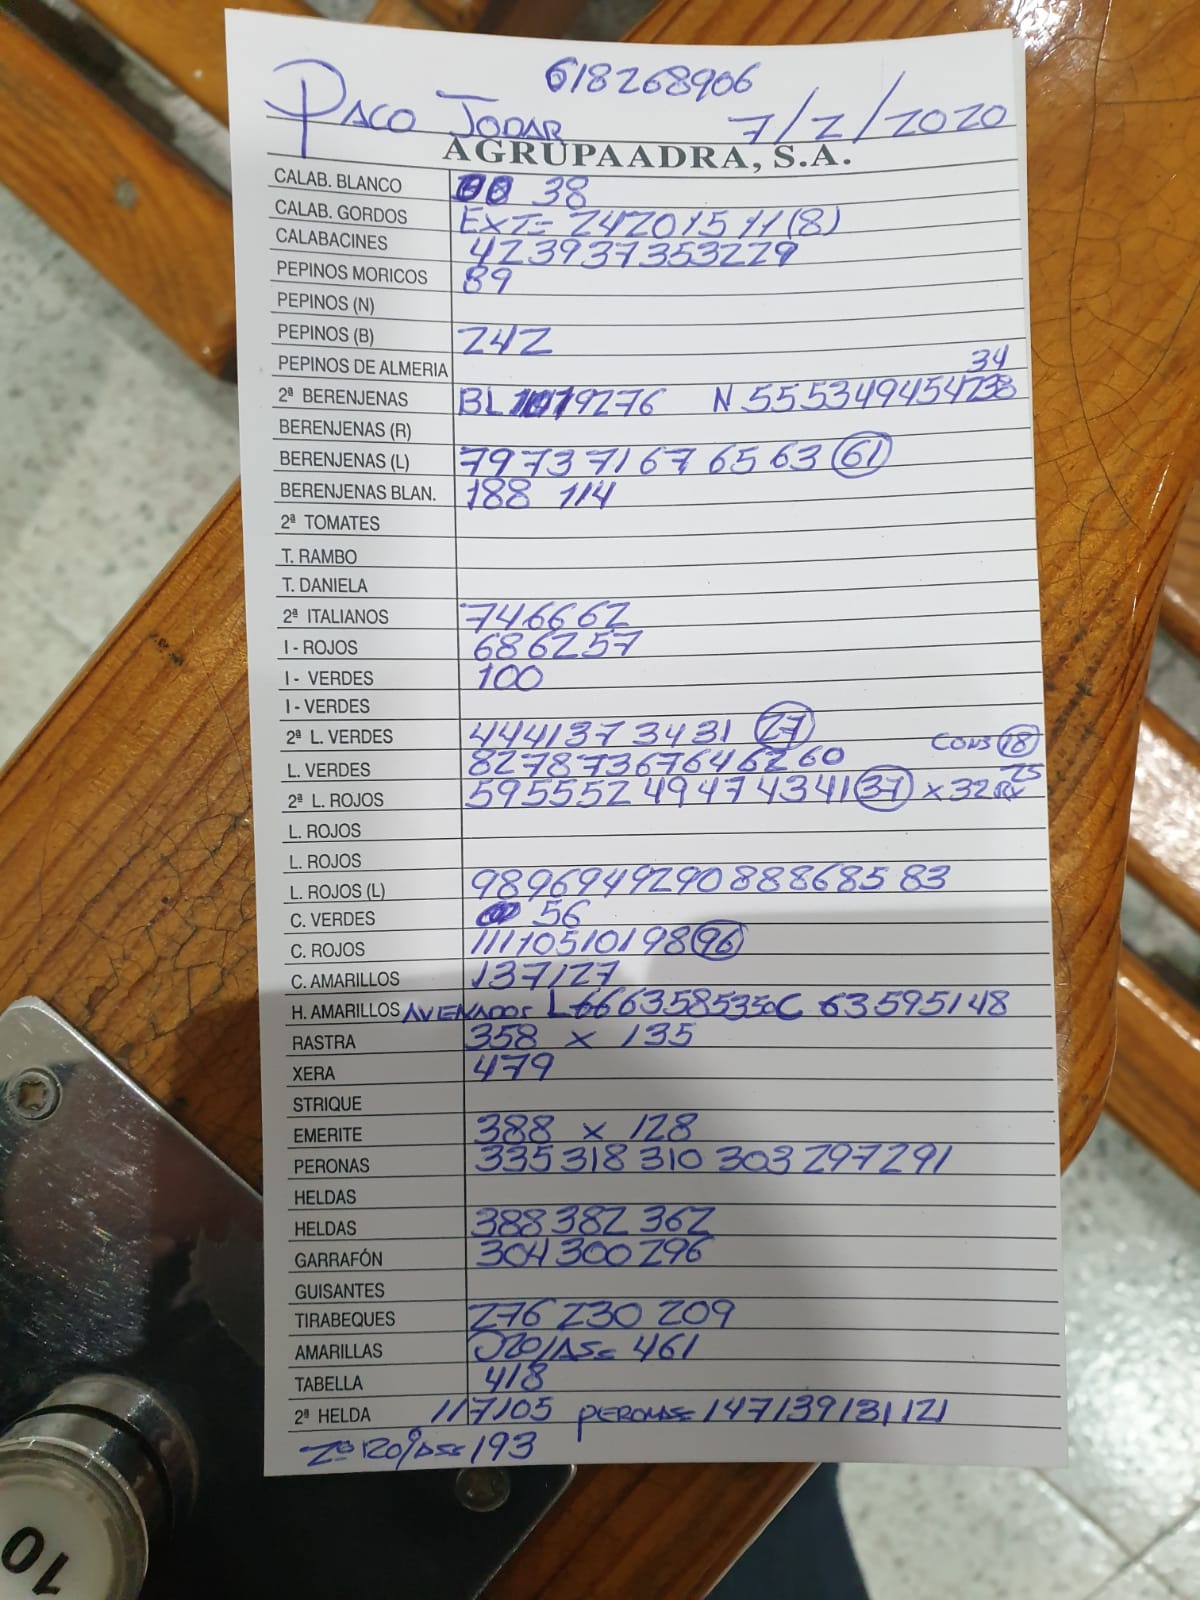 618268906
PACO JODAR 7/2/2020
AGRUPAADRA, S.A.
CALAB. BLANCO 38
CALAB. GORDOS EXT= 24201511(8)
CALABACINES 423937353229
PEPINOS MORICOS 89
PEPINOS (N)
PEPINOS (B) 242
PEPINOS DE ALMERIA 34
2ª BERENJENAS BL 9276 N 555349454238
BERENJENAS (R)
BERENJENAS (L) 79737167656361
BERENJENAS BLAN. 188 114
2ª TOMATES
T. RAMBO
T. DANIELA
2ª ITALIANOS 746662
I - ROJOS 686257
I - VERDES 100
I - VERDES
2ª L. VERDES 4441373431 27
L. VERDES 82787367646260 CONS 18
2ª L. ROJOS 5955524947434137 x 32 25
L. ROJOS
L. ROJOS
L. ROJOS (L) 989694929088868583
C. VERDES 56
C. ROJOS 1111051019896
C. AMARILLOS 137127
H. AMARILLOS AVENADOS L666358535OC 63595148
RASTRA 358 x 135
XERA 479
STRIQUE
EMERITE 388 x 128
PERONAS 335 318 310 303 297291
HELDAS
HELDAS 388 382 362
GARRAFÓN 304 300 296
GUISANTES
TIRABEQUES 276 230 209
AMARILLAS 461
TABELLA 418
2ª HELDA 117105 PERONAS= 147139131121
2ª ROJAS= 193
10